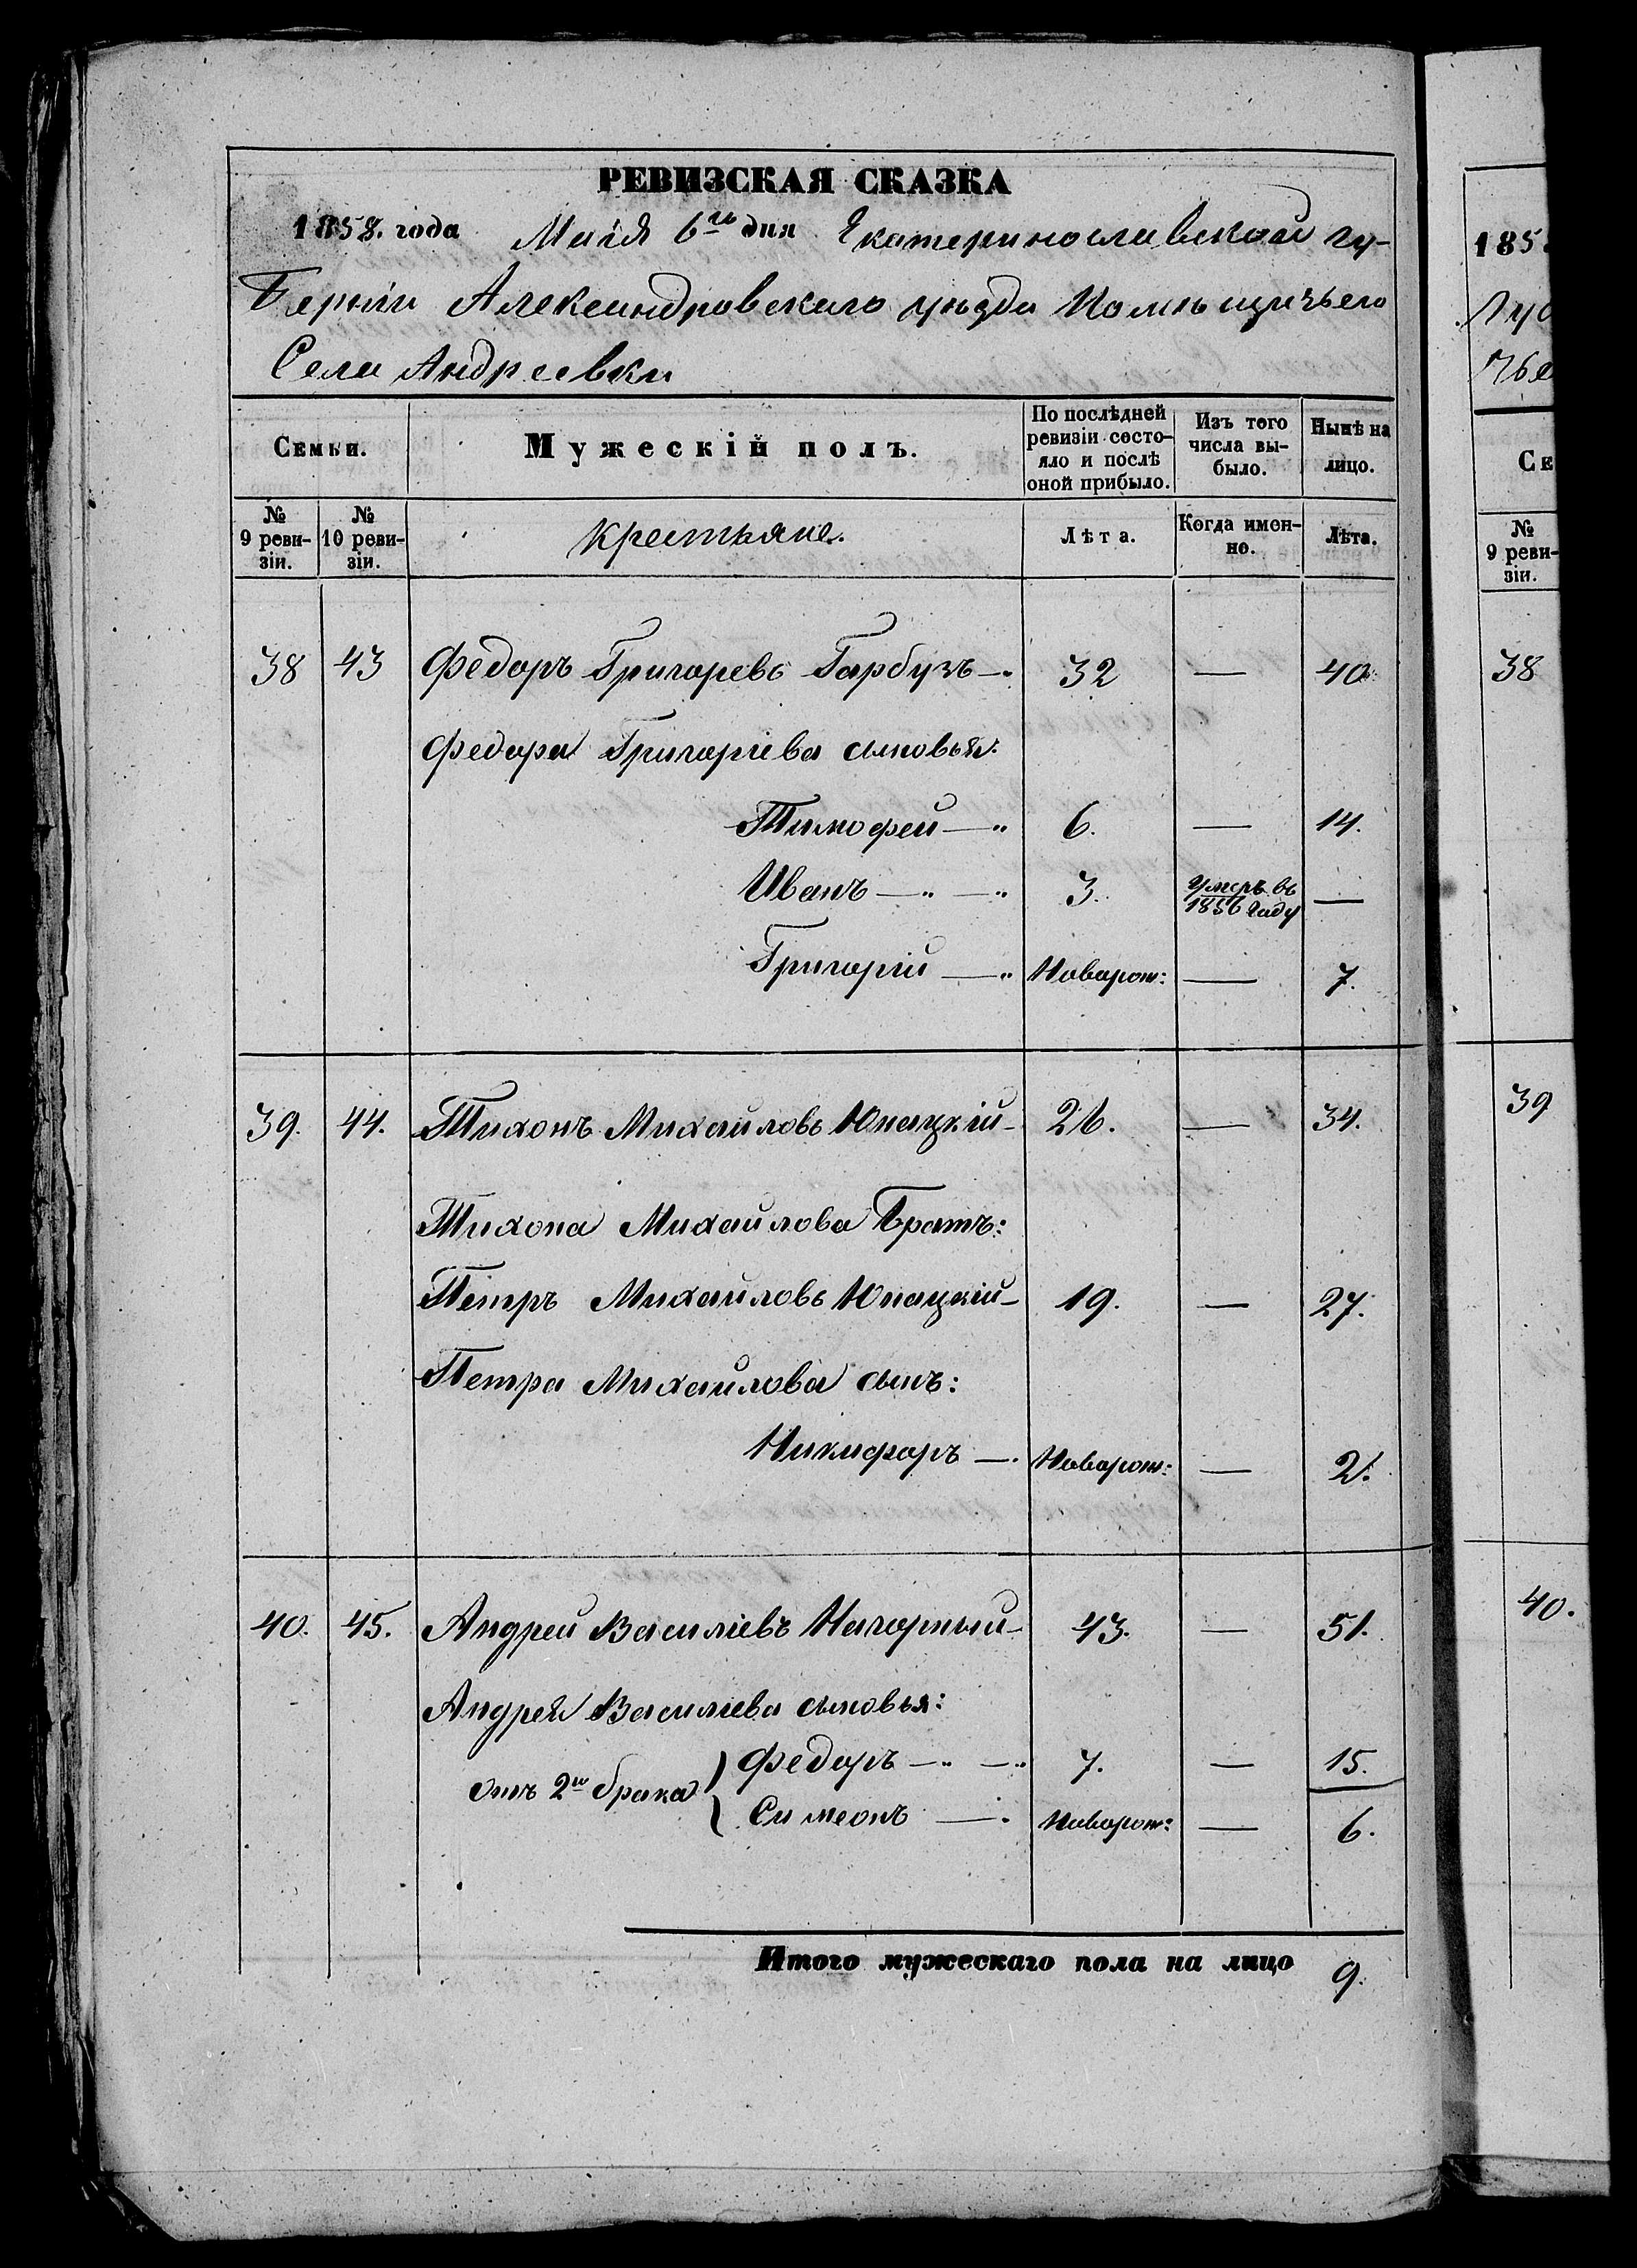 РЕВИЗСКАЯ СКАЗКА
1858. года Маія 6го дня Екатеринославской гу-
берніи Александровскаго уѣзда Помѣщичьего
Села Андреевки
Семьи. Мужескій полъ. По послѣдней ревизіи состо-яло и послѣ оной прибыло. Изъ того числа вы-было. Нынѣ на лицо.
№ 9 реви-зіи. № 10 реви-зіи. Крестьяне. Лѣта. Когда имен-но. Лѣта.
38 43 Федоръ Григоревъ Гарбузъ 32 — 40
Федора Григоріева сыновья:
Тимофей 6. — 14.
Иванъ 3. Умеръ въ 1856 году —
Григорій Новорож: — 7.
39. 44. Тихонъ Михайловъ Юпацкій 26. — 34.
Тихона Михайлова Братъ:
Петръ Михайловъ Юпацкій 19. — 27.
Петра Михайлова сынъ:
Никифоръ Новорож: — 2.
40. 45. Андрей Василіевъ Нагорный 43. — 51.
Андрея Василіева сыновья:
отъ 2го брака Федоръ 7. — 15.
Симеонъ Новорож: — 6.
Итого мужескаго пола на лицо 9.
185
Се
№
9 реви-
зіи.
38
39
40.